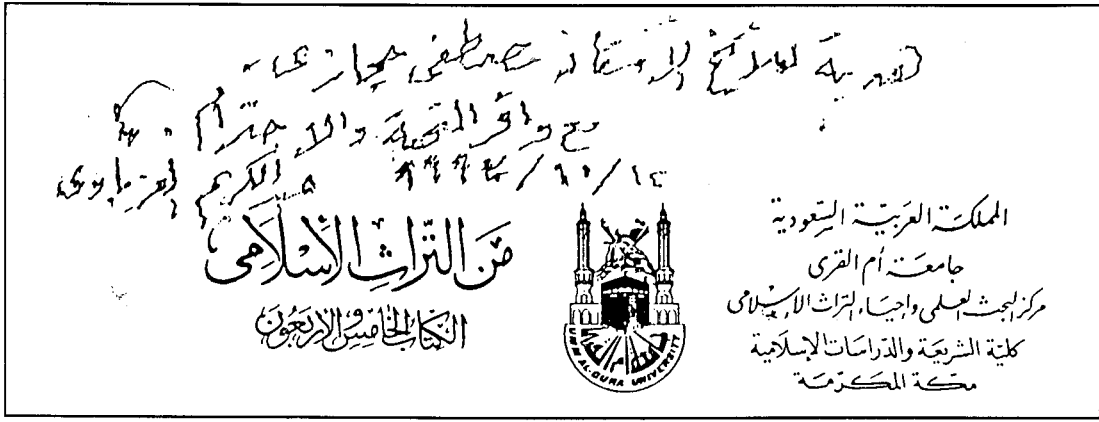 هدية للأخ الأستاذ مصطفى حجازى
مع وافر التحية والاحترام
١٤/١٠/
الكريم العزباوى
المملكة العربية السعودية
جامعة أم القرى
مركز البحث العلمى وإحياء التراث الإسلامى
كلية الشريعة والدراسات الإسلامية
مكة المكرمة
UMM AL-QURA UNIVERSITY
من التراث الإسلامى
الكتاب الخامس والأربعون